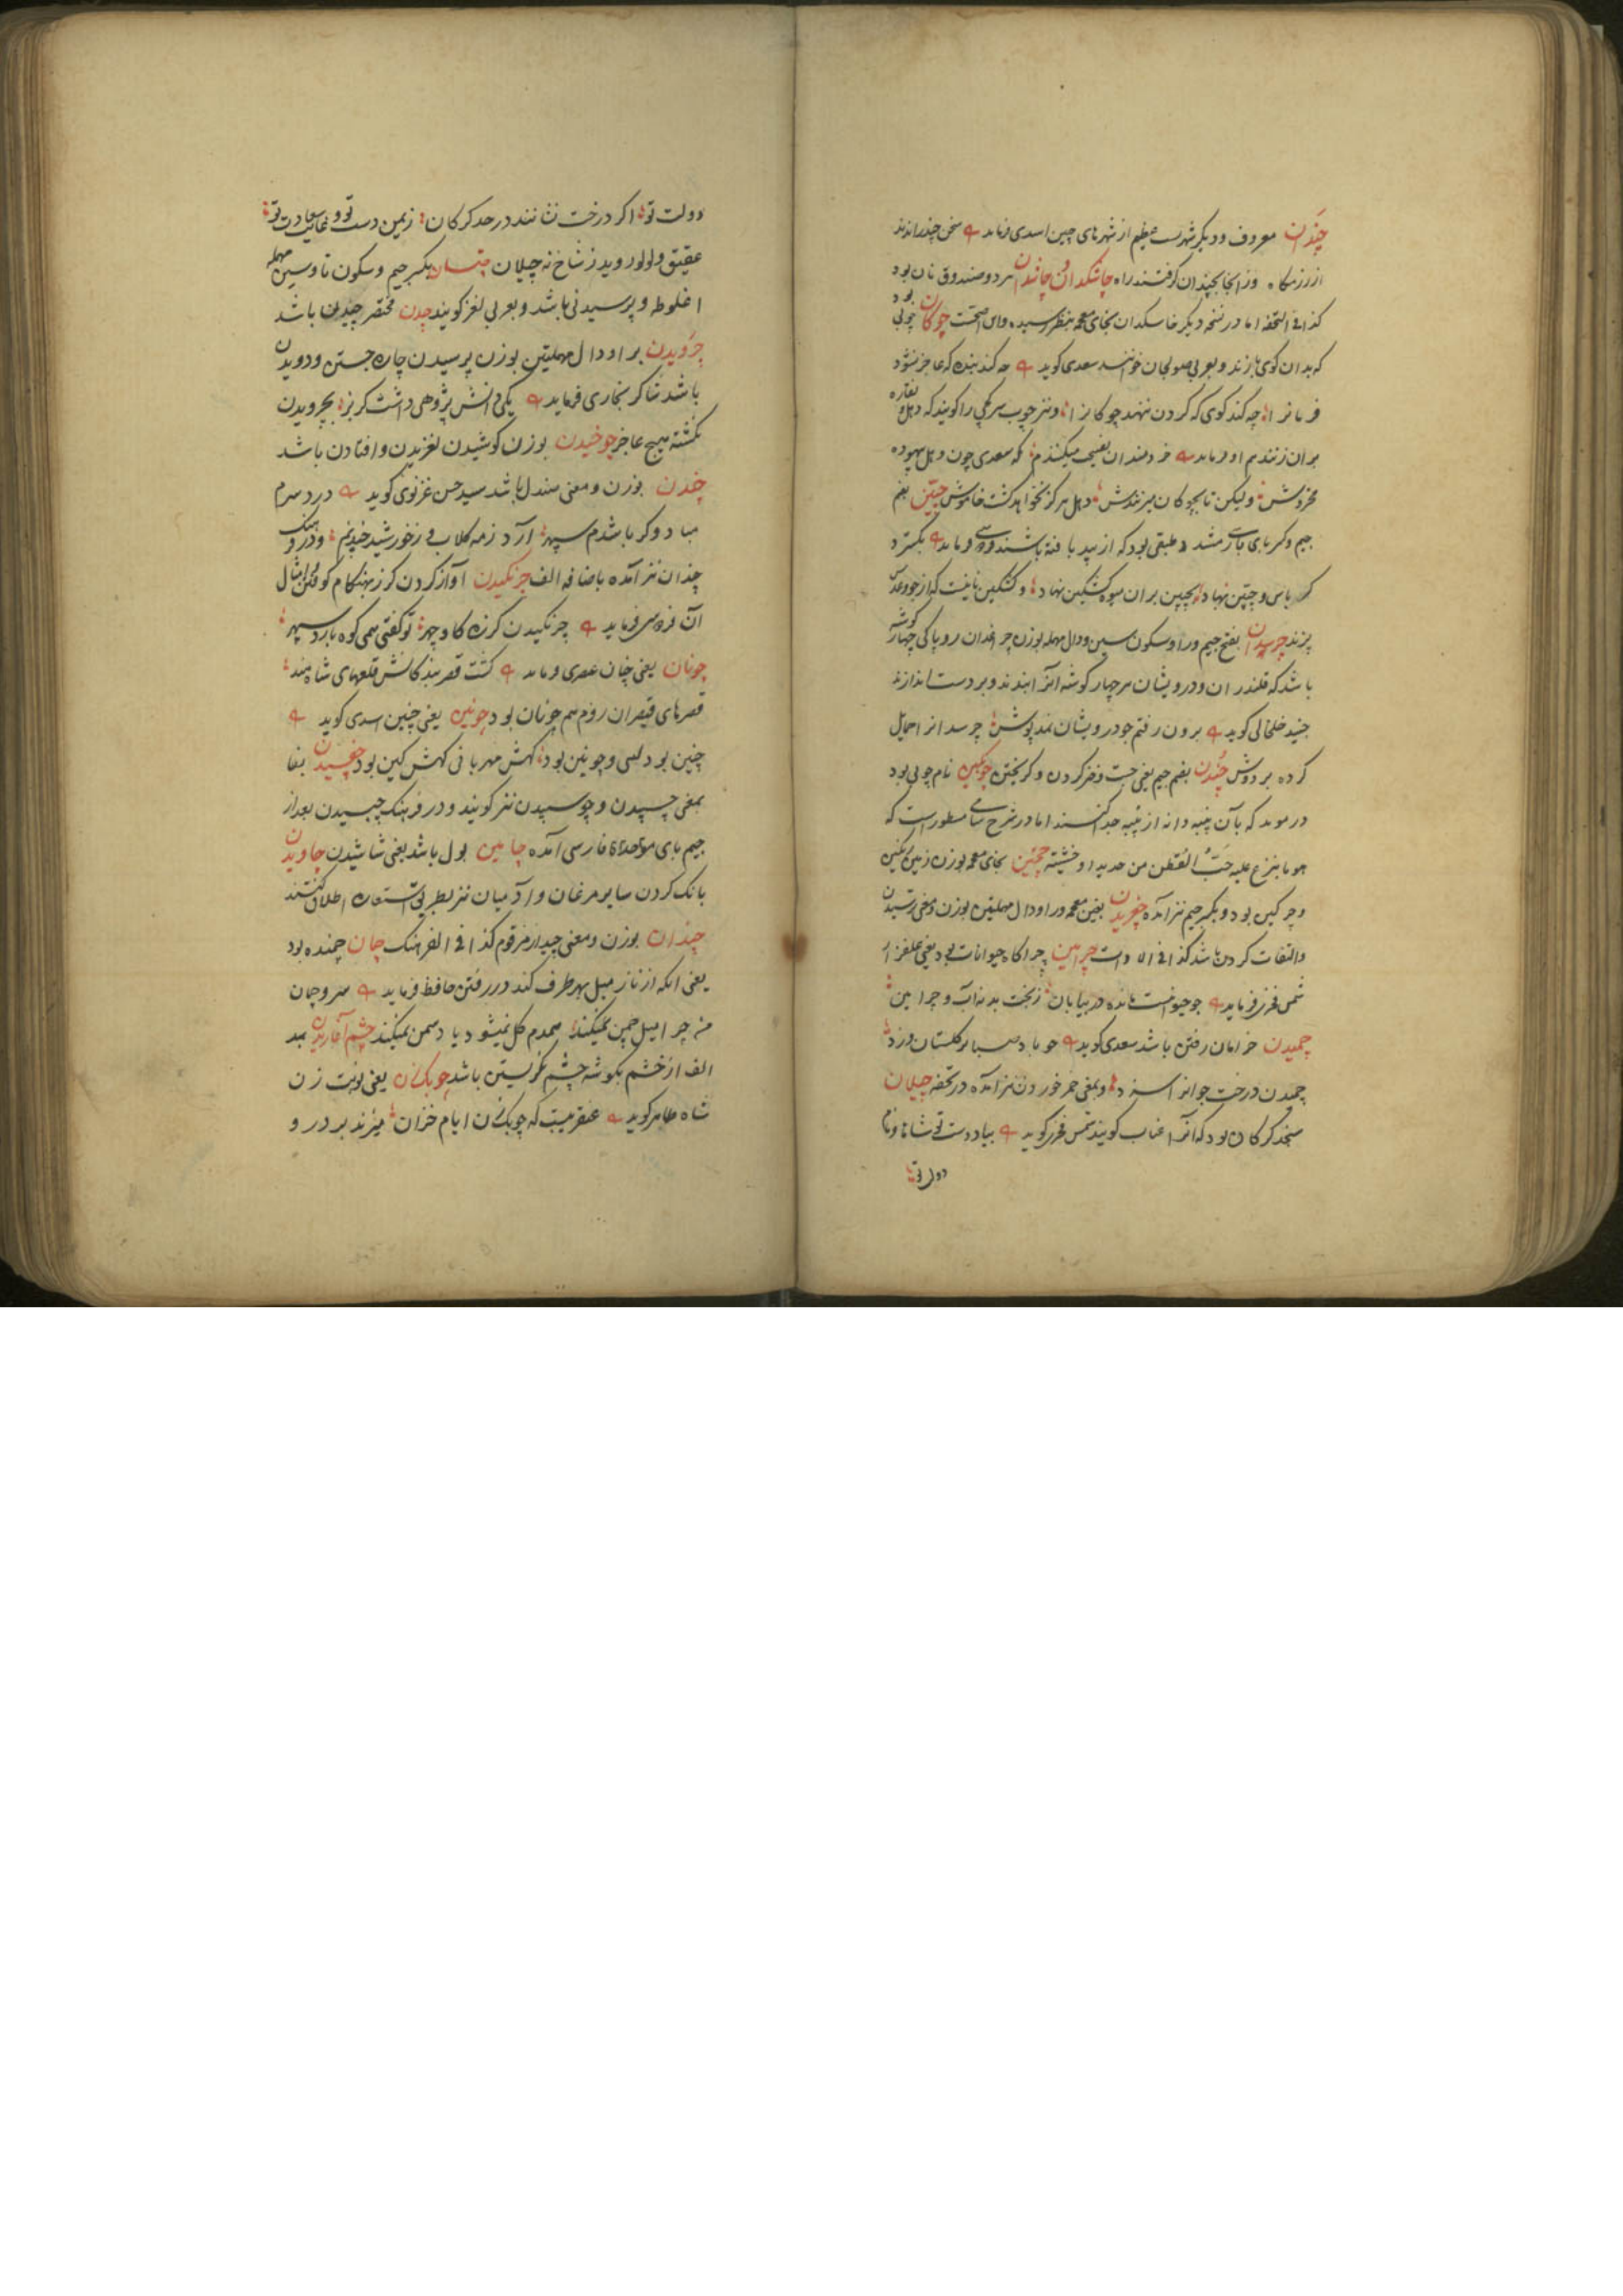 چندان معروف و دیگر شهریست عظیم از شهرهای چین اسدی فرماید سخن چندراندند
از رزمگاه وز انجا بچندان گرفتند راه چاشکدان و چاشدان هر دو صندوق نان بود
کذا فی التحفه اما در نسخه دیگر خاسکدان بخای معجمه بنظر رسیده و این اصحست چوگان چوبی بود
که بدان گوی بازند و بعربی صولجان خوانند سعدی گوید چه کند بنده که عاجز نشود
فرمانرا چه کند گوی که گردن ننهد چوگانرا و نیز چوب سرکجی را گویند که دهل و نقاره
بدان زنند هم او فرماید خردمندان نصیحت میکنندم که سعدی چون دهل بیهوده
مخروش ولیکن تا بچوگان میزنندش دهل هرگز نخواهد گشت خاموش چپین بفتح
جیم و کسر بای پارسی مشدد طبقی بود که از بید بافته باشند فردوسی فرماید بگسترد
کرباس و چپین نهاد بچپین بران میوه کشکین نهاد و کشکین نانیست که از جو و عدس
پزند چرسدان بفتح جیم و را و سکون سین و دال مهمله بوزن چرافدان روپاکی چهار گوشه
باشد که قلندران و درویشان هر چهار گوشه آنرا ببندند و بر دست اندازند
جنید خلخالی گوید برون رفتم چو درویشان نمدپوش چرسدانرا حمایل
کرده بر دوش چندن بضم جیم یعنی جست و خیز کردن و گریختن چوبکین نام چوبی بود
در موید که بآن پنبه دانه از پنبه جدا کنند اما در شرح سامی مسطورست که
هو ما ینزع علیه حب القطن من حدید او خشبته چخین بخای معجمه بوزن زمین رنگین
و چرکین بود و بکسر جیم نیز آمده چغریدن بغین معجمه و را و دال مهملتین بوزن و معنی ترسیدن
و التفات کردن باشد کذا فی الادات چرامین چراگاه حیوانات بود یعنی علفزار
شمس فخری فرماید چو حیوانست مانده در بیابان ز بخت بد نه آب و چرامین
چمیدن خرامان رفتن باشد سعدی گوید چو باد صبا بر گلستان وزد
چمیدن درخت جوانرا سزد و بمعنی خم خوردن نیز آمده در تحفه چیلان
سنجد گرگان بود که آنرا عناب گویند شمس فخری گوید بیاد دست تو شاها و نام
دولت تو
دولت تو اگر درخت نشانند در حد گرگان ز یمن دست تو و غایت سعادت تو
عقیق و لولو روید ز شاخ نه چیلان چیستان بکسر جیم و سکون تا و سین مهمله
اغلوطه و پرسیدنی باشد و بعربی لغز گویند چدن مختصر چیدن باشد
چرویدن برا و دال مهملتین بوزن پرسیدن چاره جستن و دویدن
باشد شاکر بخاری فرماید یکی دانش پژوهی داشت گربز بچرویدن
نگشته هیچ عاجز چوخیدن بوزن کوشیدن لغزیدن و افتادن باشد
چندن بوزن و معنی صندل باشد سید حسن غزنوی گوید درد سرم
مباد و گر باشدم سپهر آرد ز مه گلاب و ز خورشید چندنم و در فرهنگ
چندان نیز آمده باضافه الف چرنگیدن آواز کردن گرز بهنگام کوفتن و امثال
آن فردوسی فرماید چرنگیدن گرزه گاوچهر تو گفتی همی کوه بارد سپهر
چونان یعنی چنان عنصری فرماید گشت قصر بندگانش قلعهای شاه هند
قصرهای قیصران روم هم چونان بود چونین یعنی چنین اسدی گوید
چنین بود گیتی و چونین بود گهش مهربانی گهش کین بود چفسیدن بفا
بمعنی چسپیدن و چوسپیدن نیز گویند و در فرهنگ چبسیدن بعد از
جیم بای موحده فارسی آمده چامین بول باشد یعنی شاشیدن چاویدن
بانگ کردن سایر مرغان و آدمیان نیز بطریق استعاره اطلاق کنند
چندان بوزن و معنی چیدار مرقوم کذا فی الفرهنگ چمان چمنده بود
یعنی انکه از ناز میل بهر طرف کند در رفتن حافظ فرماید سرو چمان
من چرا میل چمن نمیکند همدم گل نمیشود یاد سمن نمیکند چشم آغاریدن بمد
الف از خشم بگوشه چشم نگریستن باشد چوبکزن یعنی نوبت زن
شاه طاهر گوید عنقریبست که چوبک زن ایام خزان میزند بر در و